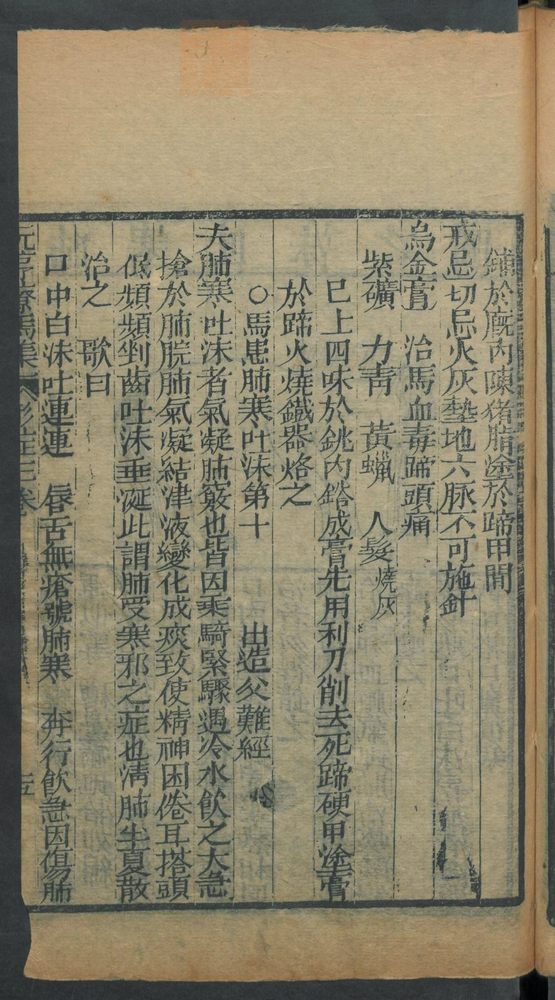 鋪於廐內陳猪脂塗於蹄甲間
戒忌切忌火灰墊地六脉不可施針
烏金膏 治馬血毒蹄頭痛
紫礦 力青 黃蠟 人髮燒灰
已上四味於銚內鎔成膏先用利刀削去死蹄硬甲塗膏
於蹄火燒鐵器烙之
○馬患肺寒吐沫第十 出造父難經
夫肺寒吐沫者氣凝肺竅也皆因乘騎緊驟遇冷水飲之太急
搶於肺脘肺氣凝結津液變化成痰致使精神困倦耳搭頭
低頻頻剉齒吐沫垂涎此謂肺受寒邪之症也淸肺生夏散
治之 歌曰
口中白沫吐連連 唇舌無瘡號肺寒 奔行飲急因傷肺
元亨療馬集